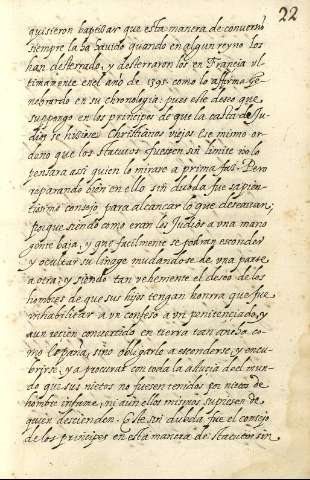 22
quisieron baptizar que esta manera de conversiõ
siempre la ha havido quando en algun reyno los
han desterrado, y desterraron los en Francia ul-
timamente en el año de 1395. como lo affirma Ge-
nebrardo en su chronologia: pues este deseo que
suppongo en los principes de que la casta de Ju-
dios se hiciese Christianos viejos ese mismo or-
deno que los statutos fuessen sin limite no lo
pensara assi quien lo mirare a prima faz. Pero
reparando bien en ello sin dubda fue sapien-
tissimo consejo para alcanzar lo que deseavan;
porque siendo como eran los Judios a una mano
gente baja, y que facilmente se podian esconder
y ocultar su linage mudandose de una parte
a otra; y siendo tan vehemente el deseo de los
hombres de que sus hijos tengan honrra que fue
inhabilitar a un confeso a un penitenciado, y
aun recien convertido en tierra tan ancha co-
mo España, sino obligarlo a esconderse, y encu-
brirse, y a procurar con toda la astucia del mun-
do que sus nietos no fuesen tenidos por nietos de
hombre infame, ni aun ellos mismos supiesen de
quien descienden. Este sin dubda fue el consejo
de los principes en esta manera de statutos sin